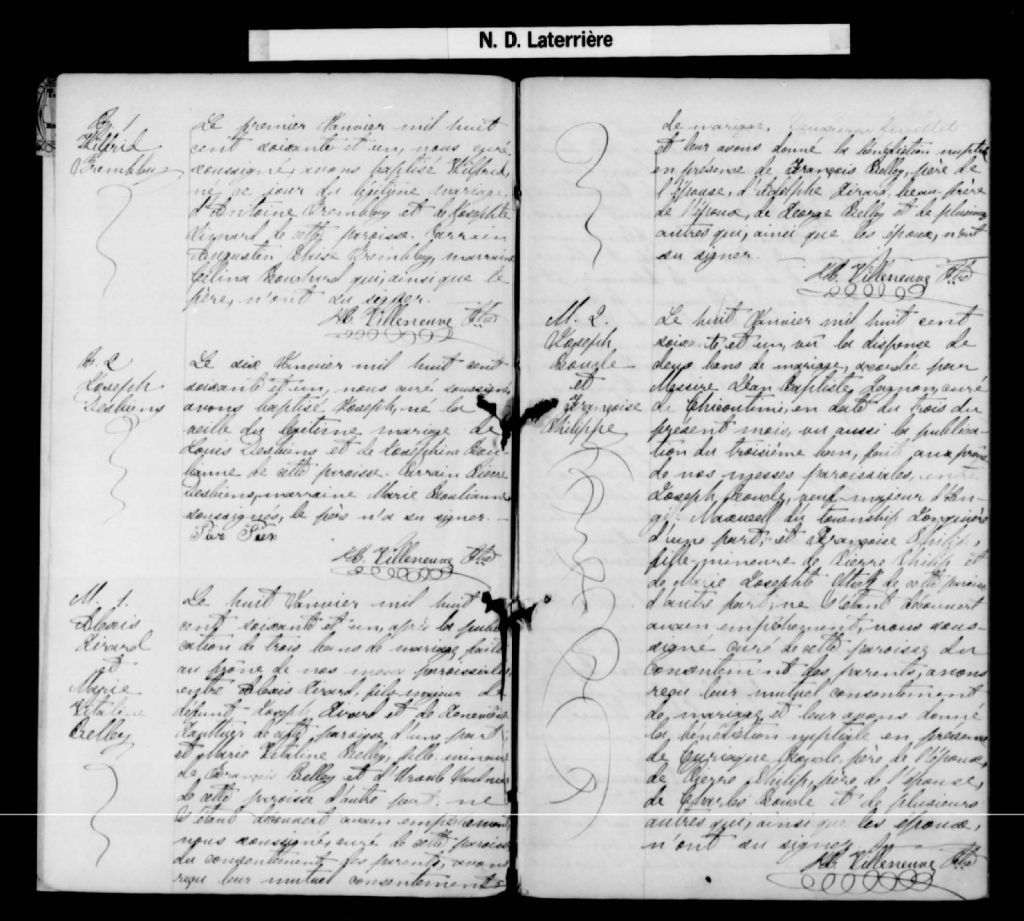 N. D. Laterrière
B. 1
Wilfrid
Tremblay
Le premier Janvier mil huit
cent soixante et un, nous curé
soussigné, avons baptisé Wilfrid,
né ce jour du légitime mariage
d'Antoine Tremblay et de Josephte
de cette paroisse. Parrain
Augustin Tremblay, marraine
Célina Bouchard qui, ainsi que le
père, n'ont su signer.
H. Villeneuve Ptre
B. 2
Joseph
Desbiens
Le six Janvier mil huit cent
soixante et un, nous curé soussigné,
avons baptisé Joseph, né la
veille du légitime mariage de
Louis Desbiens et de Joséphine
de cette paroisse. Parrain Pierre
Desbiens, marraine Marie
soussignés, le père n'a su signer.
H. Villeneuve Ptre
M. 1.
Alexis
Girard
et
Marie
Vitaline
Belley
Le huit Janvier mil huit
cent soixante et un, après la publi
cation de trois bans de mariage faite
au prône de nos messes paroissiales,
entre Alexis Girard, fils majeur de
défunt Joseph Girard et de Geneviève
de cette paroisse d'une part;
et Marie Vitaline Belley, fille mineure
de François Belley et d'Ursule
de cette paroisse d'autre part; ne
s'étant découvert aucun empêchement,
nous soussigné, curé de cette paroisse
du consentement des parents, avons
reçu leur mutuel consentement
de mariage.
et leur avons donné la bénédiction nuptiale
en présence de François Belley, père de
l'épouse, d'Adolphe Girard, beau-frère
de l'époux, de George Belley et de plusieurs
autres qui, ainsi que les époux, n'ont
su signer.
H. Villeneuve Ptre
M. 2.
Joseph
et
Françoise
Philippe
Le huit Janvier mil huit cent
soixante et un, vu la dispense de
deux bans de mariage, accordée par
Messire Jean Baptiste Gagnon, curé
de Chicoutimi, en date du trois du
présent mois, vu aussi la publica-
tion du troisième ban, faite au prône
de nos messes paroissiales, entre
Joseph veuf majeur d'An-
township
d'une part; et Françoise Philip,
fille mineure de Pierre Philip et
de Marie Josephte de cette paroisse
d'autre part; ne s'étant découvert
aucun empêchement, nous sous-
signé curé de cette paroisse du
consentement des parents, avons
reçu leur mutuel consentement
de mariage et leur avons donné
la bénédiction nuptiale en présence
de père de l'époux,
de Pierre Philip, père de l'épouse,
de Charles et de plusieurs
autres qui, ainsi que les époux,
n'ont su signer.
H. Villeneuve Ptre